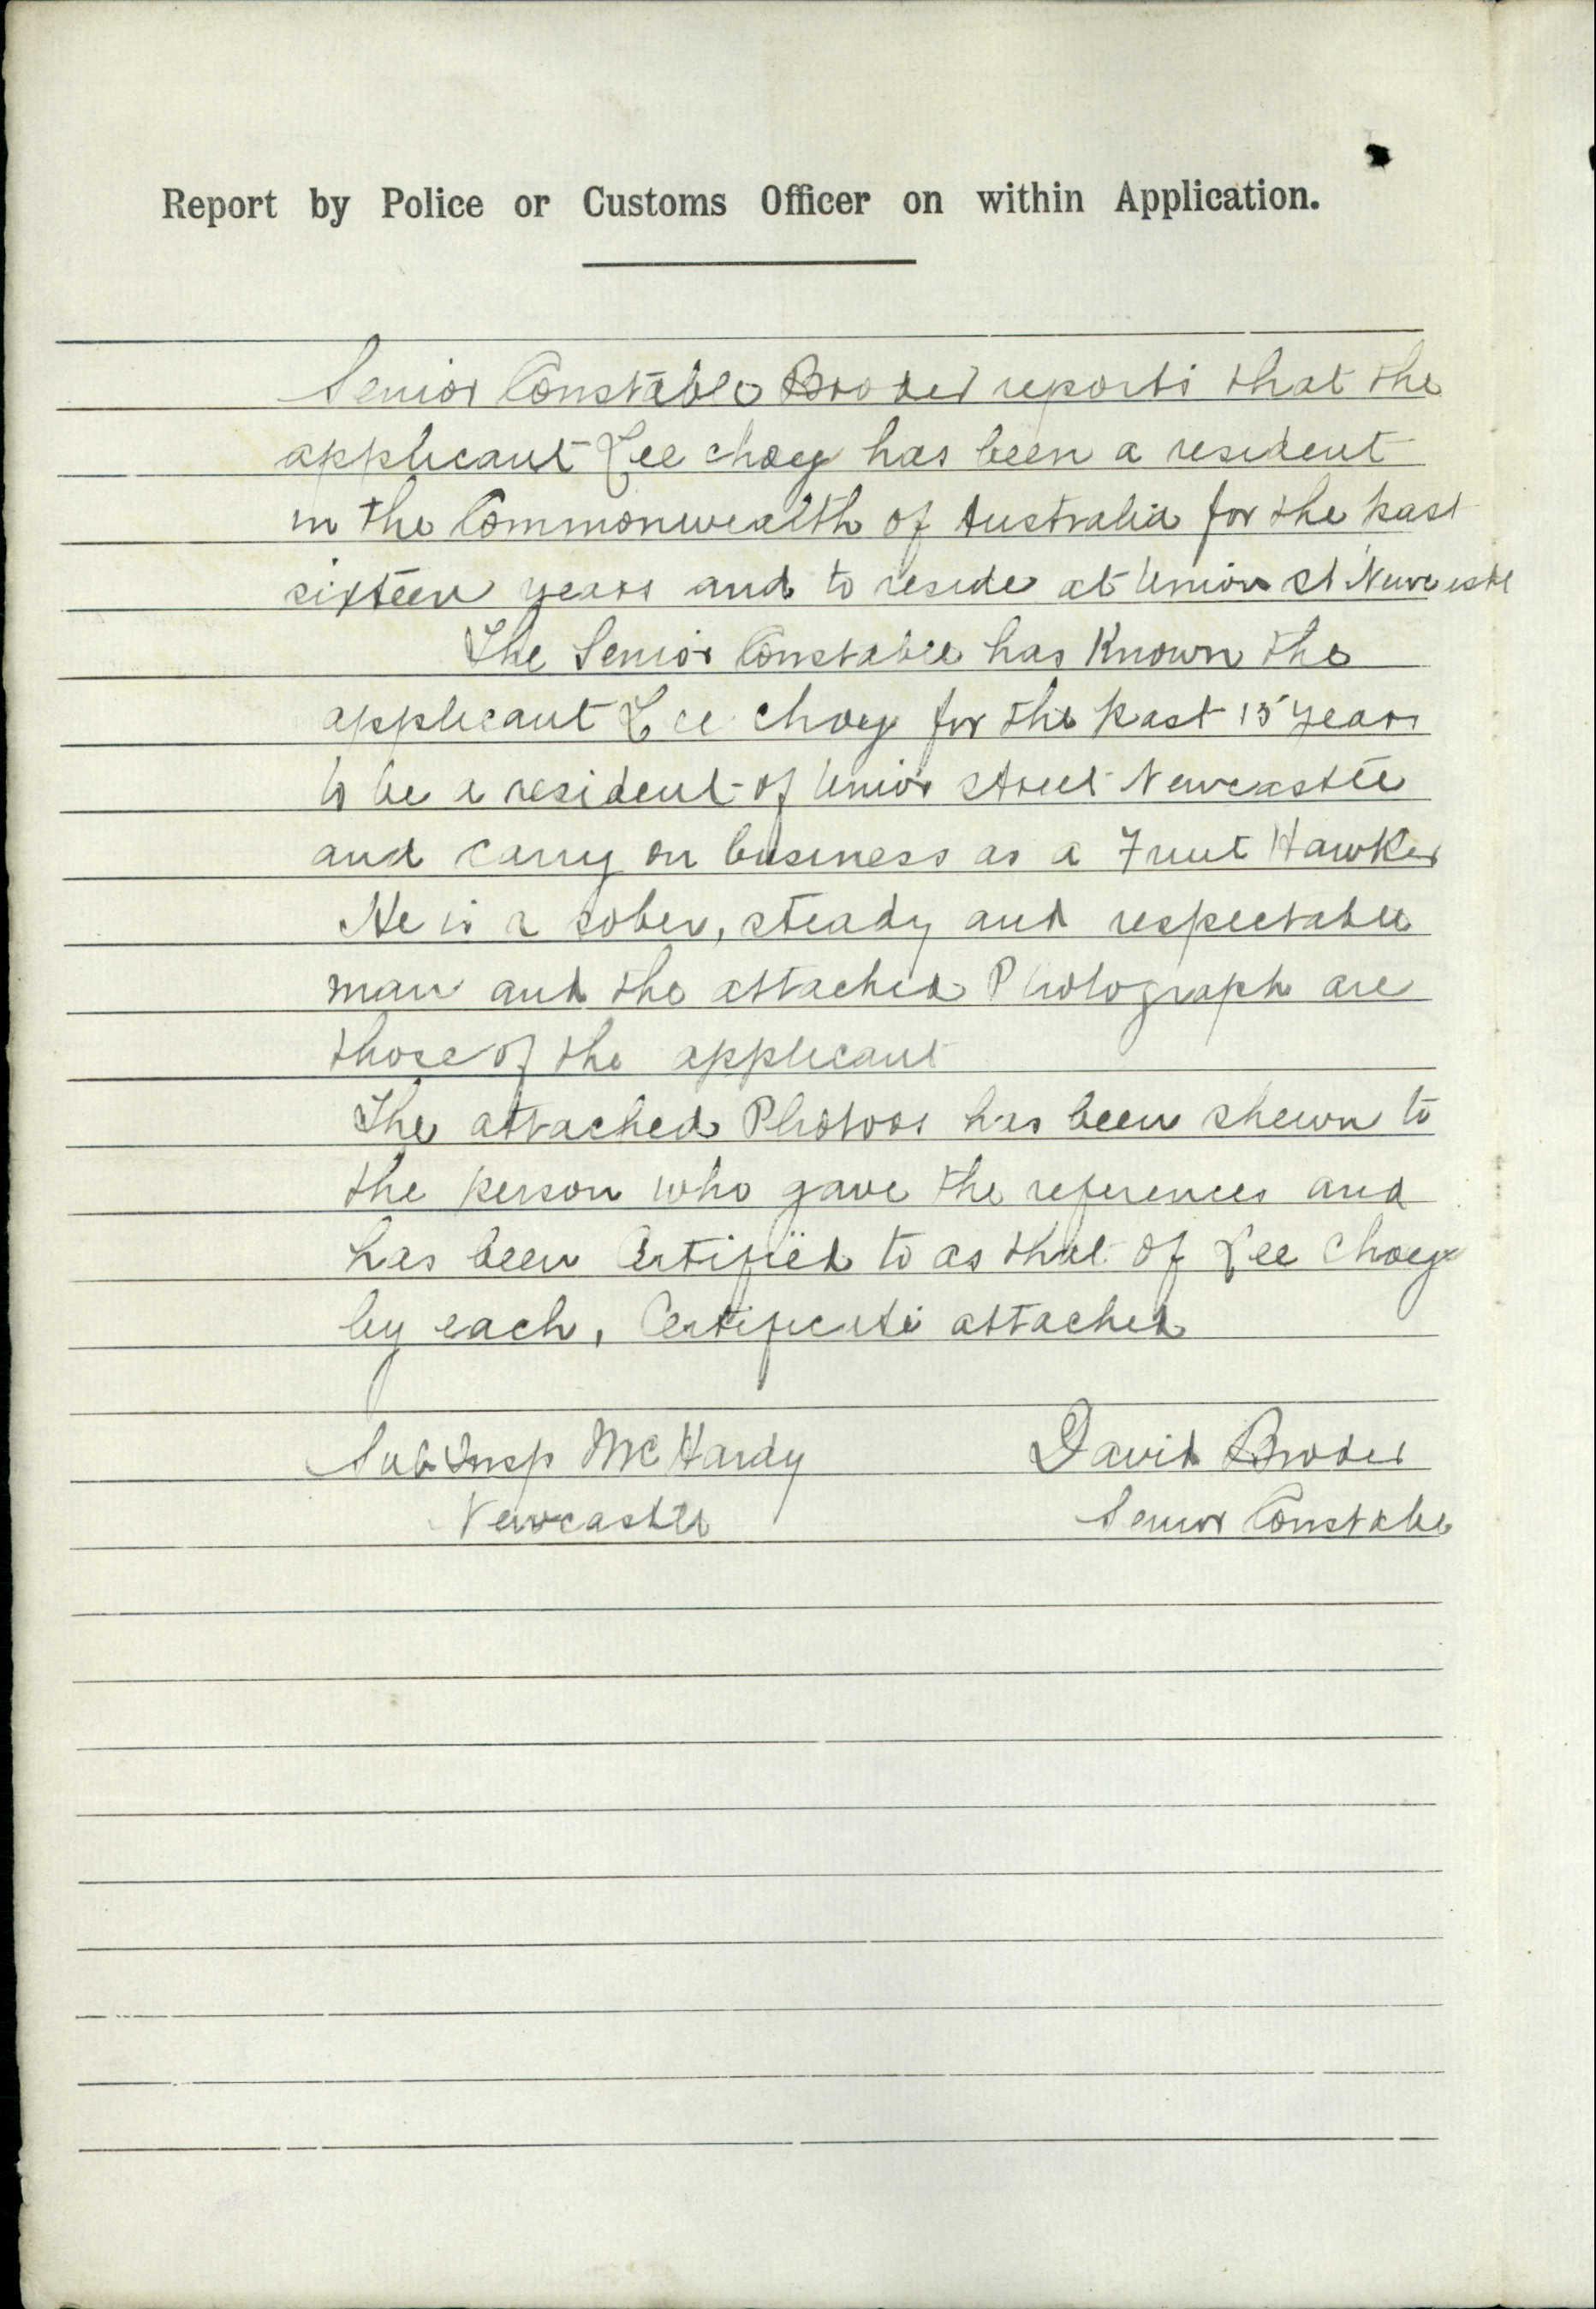 Report by Police or Customs Officer on within Application.
Senior Constable Broder reports that the
applicant Lee Choey has been a resident
in the Commonwealth of Australia for the past
sixteen years and to reside at Union St Newcastle
The Senior Constable has Known the
applicant Lee Choey for the past 15 years
to be a resident of Union Street Newcastle
and carry on business as a Fruit Hawker
He is a sober, steady and respectable
man and the attached Photograph are
those of the applicant
The attached Photoos has been shewn to
the person who gave the references and
has been Certified to as that of Lee Choey
by each, Certificate attached
Sub Insp McHardy
Newcastle
David Broder
Senior Constable